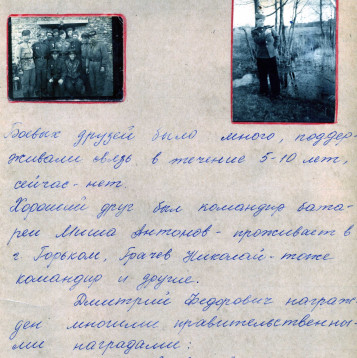 Боевых друзей было много, поддер-
живали связь в течение 5-10 лет,
сейчас - нет.
Хороший друг был командир бата-
реи Миша Антонов - проживает в
г Горьком, Грачев Николай - тоже
командир и другие.
Дмитрий Федорович награж-
ден многими правительственны-
ми наградами: